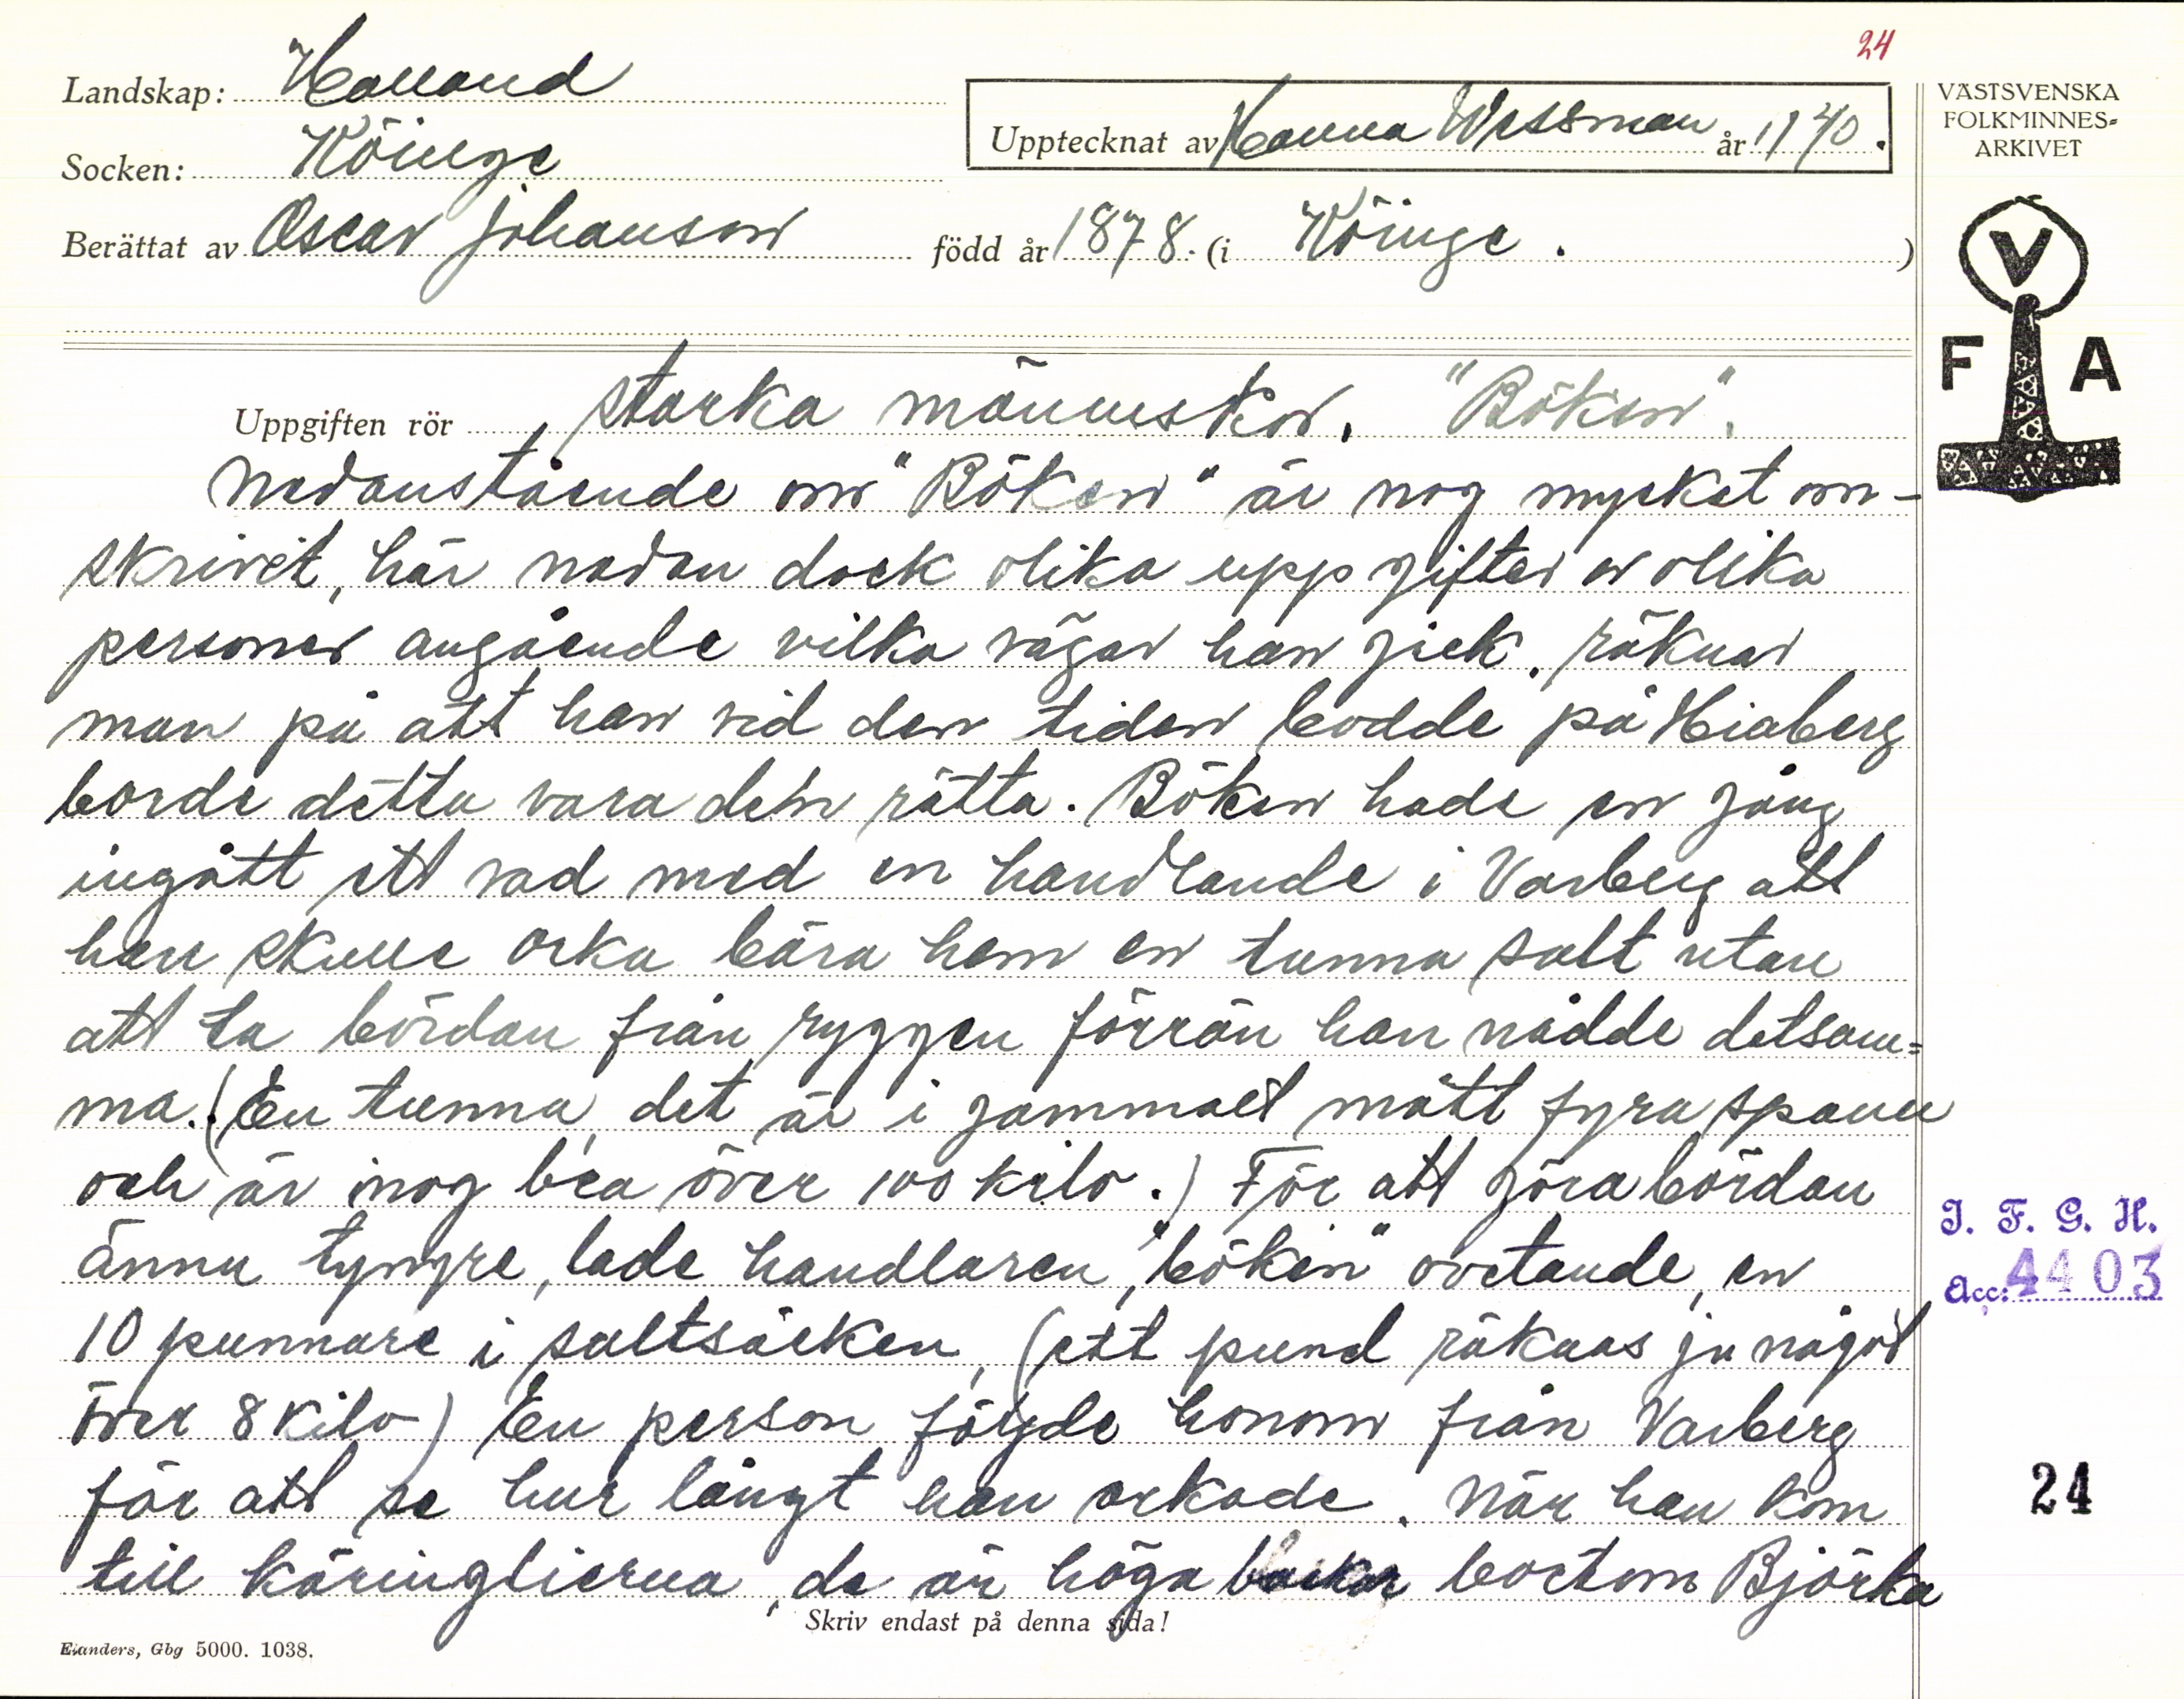 24
Landskap: Halland
Socken: Köinge
Upptecknat av Hanna Wessman år 1940.
Berättat av Oscar Johanson född år 1878. (i Köinge. )
VÄSTSVENSKA
FOLKMINNES=
ARKIVET
V
F A
Uppgiften rör starka människor. "Böken".
Nedanstående om "Böken" är nog mycket om-
skrivet, här nedan dock olika uppgifter av olika
personer angående vilka vägar han gick, räknar
man på att han vid den tiden bodde på Hiaberg
borde detta vara den rätta. Böken hade en gång
ingått ett vad med en handlande i Varberg att
han skulle orka bära hem en tunna salt utan
att ta bördan från ryggen förrän han nådde detsam=
ma. (En tunna, det är i gammalt mått fyra spann
och är nog bra över 100 kilo.) För att göra bördan
ännu tyngre, lade handlaren, "böken" ovetande, en
10 punnare i saltsäcken, (ett pund räknas ju något
över 8 kilo) En person följde honom från Varberg
för att se hur långt han orkade. När han kom
till käringlierna, de är höga backar bortom Björka
I. F. G. H.
Acc: 4403
24
Skriv endast på denna sida!
Elanders, Gbg 5000. 1038.